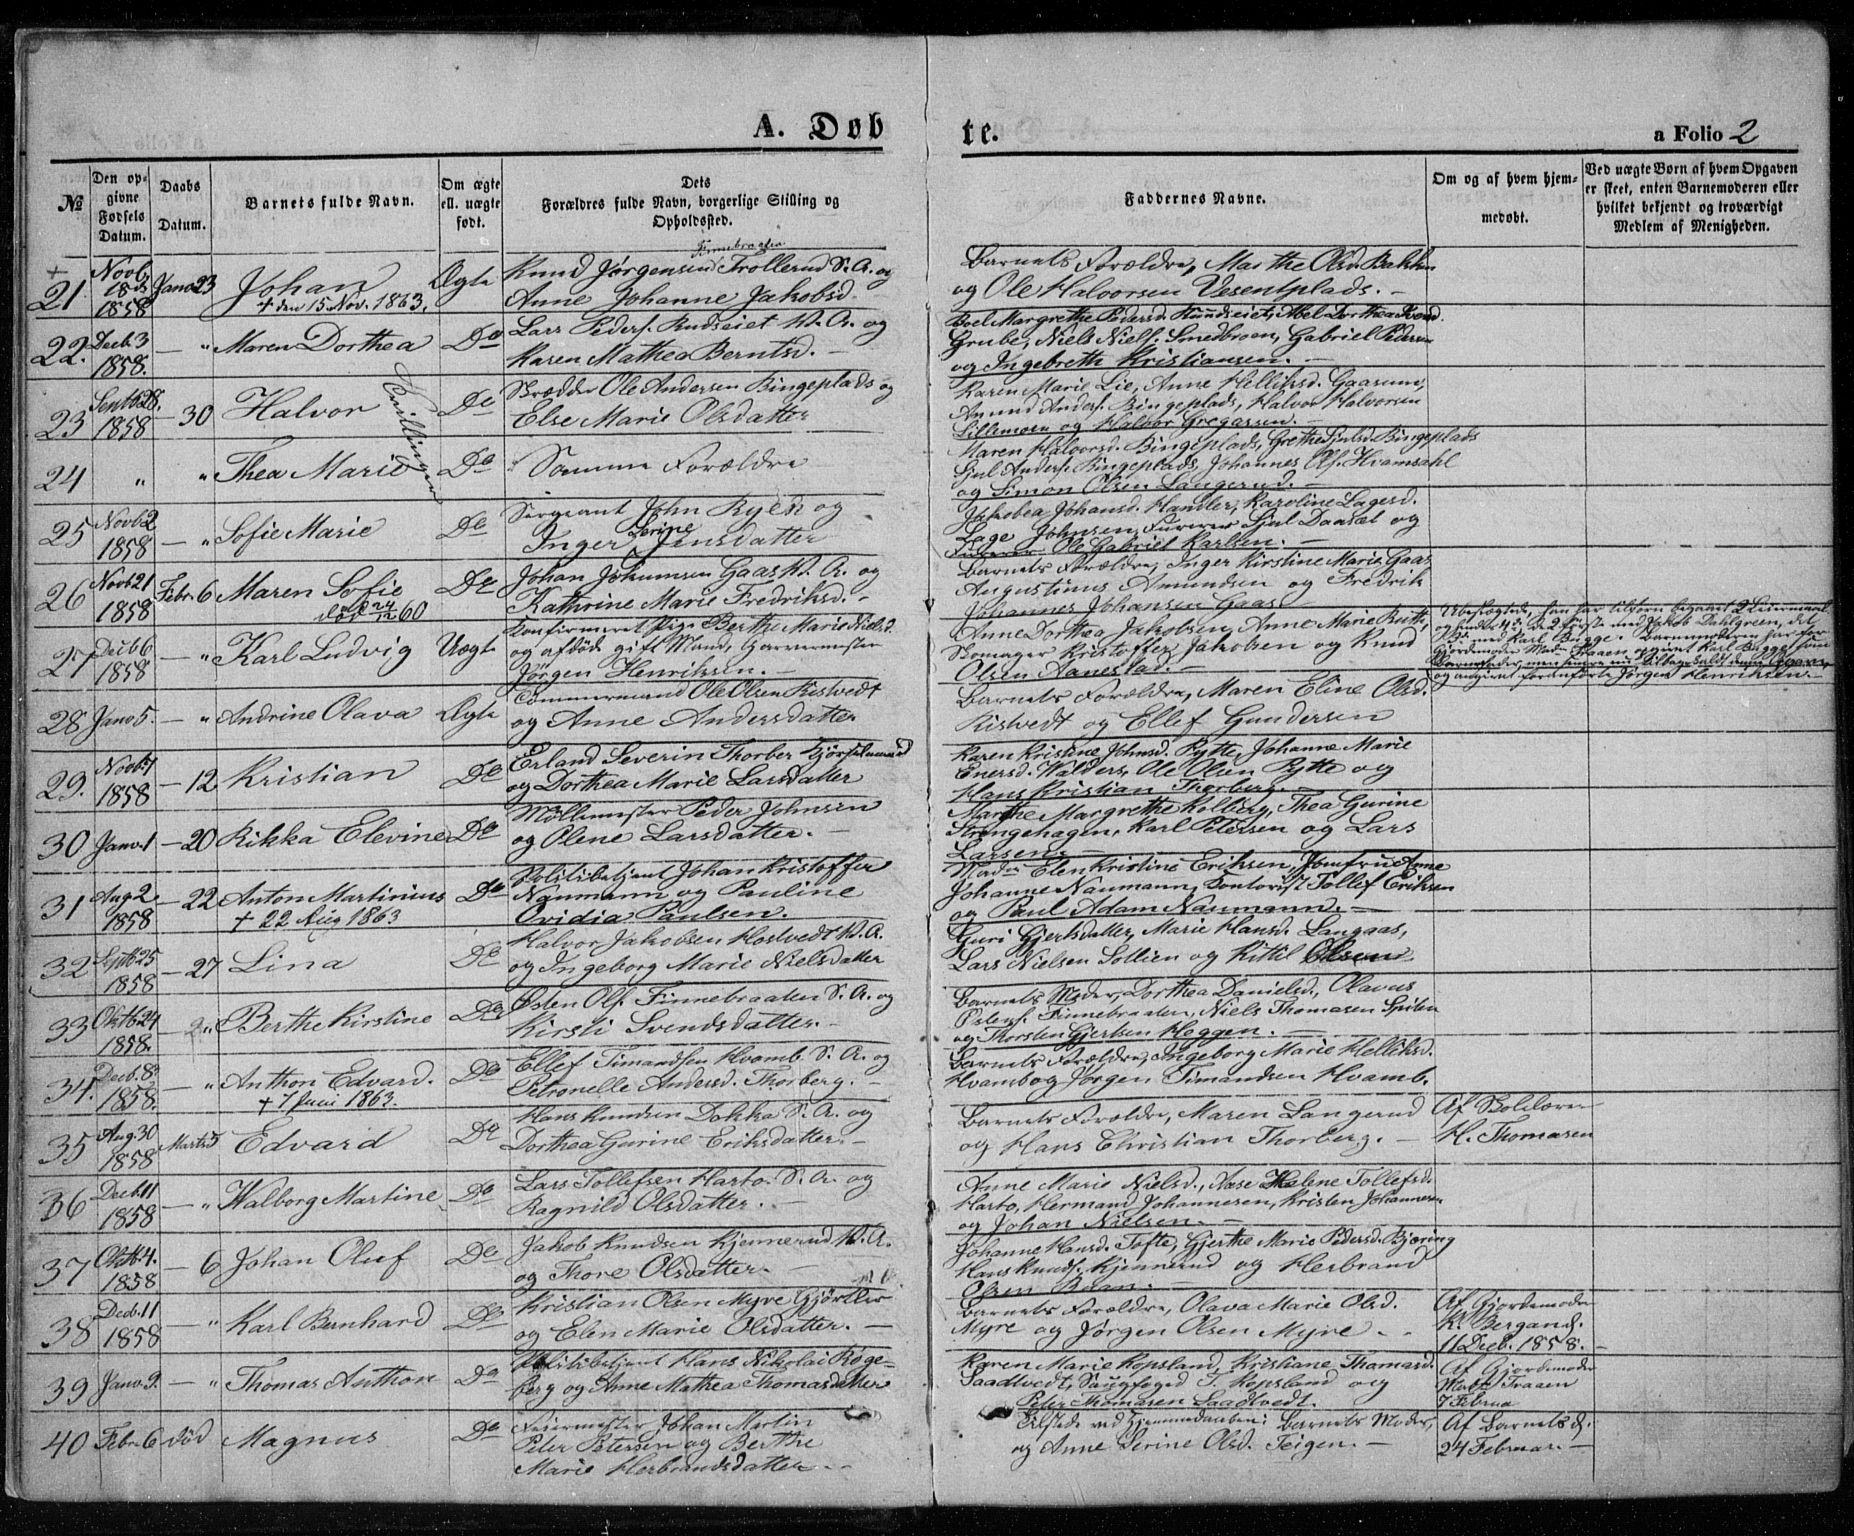 A. Døb
te.
a Folio 2
№
Den opgivne Fødsels Datum.
Daabs Datum.
Barnets fulde Navn.
Om ægte ell. uægte født.
Dets Forældres fulde Navn, borgerlige Stilling og Opholdssted.
Faddernes Navne.
Om og af hvem hjemmedøbt.
Ved uægte Børn af hvem Opgaven er skeet, enten Barnemoderen eller hvilket bekjendt og troværdigt Medlem af Menigheden.
+
21. Novb. 18de 1858 Janv. 23 Johan Ægte
+ den 15 Nov. 1863.
Finnebraaten
Knud Jørgensen Trollerud S. A. og
Anne Johanne Jakobsd.
Barnets Forældre, Marthe Olsd. Bakken
og Ole Halvorsen Vesentplads. –
22. Decb. 3 1858. – " Maren Dorthea Do
Lars Peders. Rudseiet V. A. og
Karen Mathea Berntsd. –
Boel Margrethe Pedersd. Hundseiet, Abel Dorthea
Grube, Niels Niels. Smedbroen, Gabriel Pedersen
og Ingebreth Kristiansen. –
23 Septb. 28. 1858 – 30 Halvor Do
Tvillinger
Skrædder Ole Andersen Bingeplads og
Else Marie Olsdatter
Karen Marie Lie, Anne Helliksd. Gaasum,
Amund Anders. Bingeplads, Halvor Halvorsen
Lillemoen og Halvor Gregersen. –
24 " " Thea Marie Do
Samme Forældre
Maren Halvorsd. Bingeplads, Grethe Bingeplads
Gul Anders. Bingeplads, Johannes Ols. Hvamsahl
og Simon Olsen Langerud. –
25 Novb. 2 1858 – " Sofie Marie Do
Sergeant John Ryen og
Inger Serine Jensdatter
Jakobea Johansd. Handler, Karoline Lagesd.
Lage Johnsen, Furerer Gul Daasæt og
Furerer Ole Gabriel Karlsen. –
26 Novb. 21 1858 Febr. 6 Maren Sofie Do
død 24/12 60
Johan Johannsen Gaas V. A. og
Kathrine Marie Fredriksd. –
Barnets Forældre, Inger Kirstine Marie Gaas,
Augustinus Amundsen og Fredrik
Johannes Johansen Gaas
27 Decb. 6 1858 – " Karl Ludvig Uægte
Konfirmeret Pige Berthe Marie Nielsd.
og afdøde gift Mand, Garvermester
Jørgen Henriksen. –
Anne Dorthea Jakobsen, Anne Marie Beith,
Skomager Kristoffer Jakobsen og Knud
Olsen Aanestad. –
Ubeslægtede, han har tilforn begaaet 2 Leiermaal
og hun 4de, de 2 første med Jakob Dahlgreen, det
3die med Karl Bugge. Barnemoderen har for
Gjordemoder Mad. Fraaen opgivet Karl Bugge som
Barnefader, men
og angivet foranførte Jørgen Henriksen. –
28 Janv. 5. – " Andrine Olava Ægte
Tømmermand Ole Olsen Ristvedt
og Anne Andersdatter
Barnets Forældre, Maren Eline Olsd.
Ristvedt og Ellef Gundersen
29. Novb. 7 1858 – 12 Kristian Do
Erland Severin Thorber
og Dorthea Marie Larsdatter
Karen Kristine Johnsd. Pytte, Johanne Marie
Enersd. Walders, Ole Olsen Pytte og
Hans Kristian Thorberg. –
30 Janv. 1 – 20 Rikka Elevine Do
Møllemester Peder Johnsen
og Olene Larsdatter. –
Marthe Margrethe Kolberg, Thea Gurine
Strengehagen, Karl Petersen og Lars
Larsen. –
31 Aug. 2 1858 – 22 Anton Martinius Do
+ 22 Aug 1863
Politibetjent Johan Kristoffer
Naumann og Pauline
Ovidia Paulsen.
Madm Elen Kristine Eriksen, Jomfru Anne
Johanne Naumann, Kontorist Tollef Eriksen
og Paul Adam Naumann. –
32 Septb. 25 1858 – 27 Lina Do
Halvor Jakobsen Hostvedt V. A.
og Ingeborg Marie Nielsdatter
Guri Gjertsdatter, Marie Hansd. Langaas,
Lars Nielsen Sollien og Kittil Olsen
33 Oktb. 24 1858. – " Berthe Kirstine Do
Østen Ols. Finnebraaten S. A. og
Kirsti Svendsdatter. –
Barnets Moder, Dorthea Danielsd., Olavus
Østens. Finnebraaten, Niels Thomasen Spiten
og Thorsten Gjertsen Hoggen. –
34. Decb. 8 1858. – " Anthon Edvard. Do
+ 7 Juni 1863.
Ellef Timandsen Hvamb S. A. og
Petronelle Andersd. Thorberg. –
Barnets Forældre, Ingeborg Marie Helliksd.
Hvamb og Jørgen Timandsen Hvamb.
35 Aug. 30 1858 Marts 5 Edvard Do
Hans Knudsen Dokka S. A. og
Dorthea Gurine Eriksdatter. –
Barnets Forældre, Maren Langerud
og Hans Christian Thorberg. –
Af Skolelærer
H. Thomasen
36 Decb. 11 1858 – " Walborg Martine Do
Lars Tollefsen Harto. S. A. og
Ragnild Olsdatter.
Anne Marie Nielsd., Aase Helene Tollefsd.
Harto, Hermand Johannesen, Kristen Johannesen
og Johan Nielsen. –
37 Oktb. 4. 1858 – 6 Johan Oluf Do
Jakob Knudsen Kjennerud V. A.
og Thore Olsdatter. –
Johanne Hansd. Tofte, Gjerthe Marie Pedersd. Bjæring
Hans Knuds. Kjennerud og Herbrand
Olsen Bdan. –
38 Decb. 11 1858 – " Karl Bernhard Do
Kristian Olsen Myre Gjørtler
og Elen Marie Olsdatter. –
Barnets Forældre, Olava Marie Olsd.
Myre og Jørgen Olsen Myre. –
Af Gjordemoder
K. Bergan d.
11 Decb. 1858. –
39 Janv. 9. – " Thomas Anthon Do
Politibetjent Hans Nikolai Røge-
berg og Anne Mathea Thomasdatter
Karen Marie Kopsland, Kristiane Thomasd.
Saadtvedt, Saugfoged T. Kopsland og
Peter Thomasen Saadtvedt.
Af Gjordemoder
Made Fraaen
7 Februa
40 Febr. 6 død Magnus Do
Feiermester Johan Martin
Peter Petersen og Berthe
Marie Herbrandsdatter. –
Tilstede ved Hjemmedaaben: Barnets Moder,
og Anne Serine Olsd. Teigen. –
Af Barnets
24 Februar. –